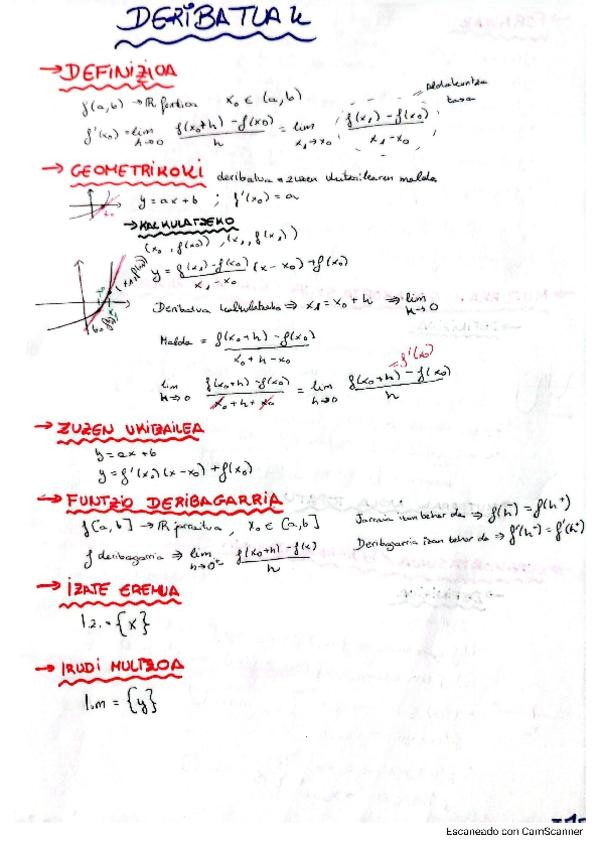 DERIBATUAK
→ DEFINIZIOA
f(a,b) → ℝ x₀ ∈ (a,b)
f'(x₀) = lim h→0 (f(x₀+h) - f(x₀))/h = lim x₁→x₀ (f(x₁) - f(x₀))/(x₁-x₀)
→ GEOMETRIKOKI deribatua = zuzen ukitzailearen malda
y = ax + b ; f'(x₀) = a
→ KALKULATZEKO
(x₀, f(x₀)), (x₁, f(x₁))
y = (f(x₁) - f(x₀))/(x₁-x₀) (x - x₀) + f(x₀)
Deribatua kalkulatzeko ⇒ x₁ = x₀ + h ⇒ lim h→0
Malda = (f(x₀+h) - f(x₀))/(x₀+h-x₀) = f'(x₀)
lim h→0 (f(x₀+h) - f(x₀))/(x₀+h+x₀) = lim h→0 (f(x₀+h) - f(x₀))/h
→ ZUZEN UKITZAILEA
y = ax + b
y = f'(x₀)(x-x₀) + f(x₀)
→ FUNTZIO DERIBAGARRIA
f[a,b] → ℝ , x₀ ∈ [a,b] Jarraia izan behar da ⇒ f(h⁻) = f(h⁺)
f deribagarria ⇒ lim (f(x₀+h) - f(x))/h Deribagarria izan behar da ⇒ f'(h⁻) = f'(h⁺)
→ IZATE EREMUA
I.z. = {x}
→ IRUDI MULTZOA
I.m = {y}
Escaneado con CamScanner